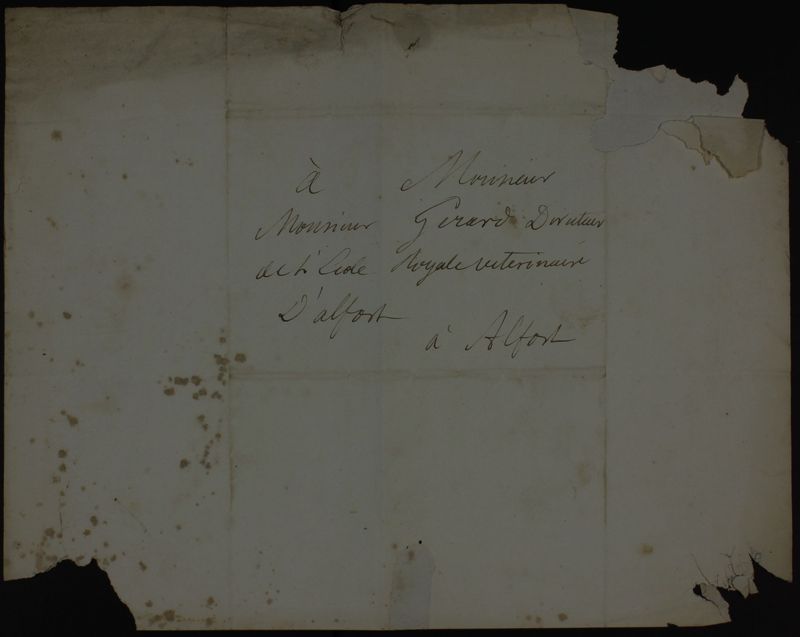 à Monsieur
Monsieur Gerard Directeur
de L'Ecole Royale veterinaire
D'alfort
à Alfort